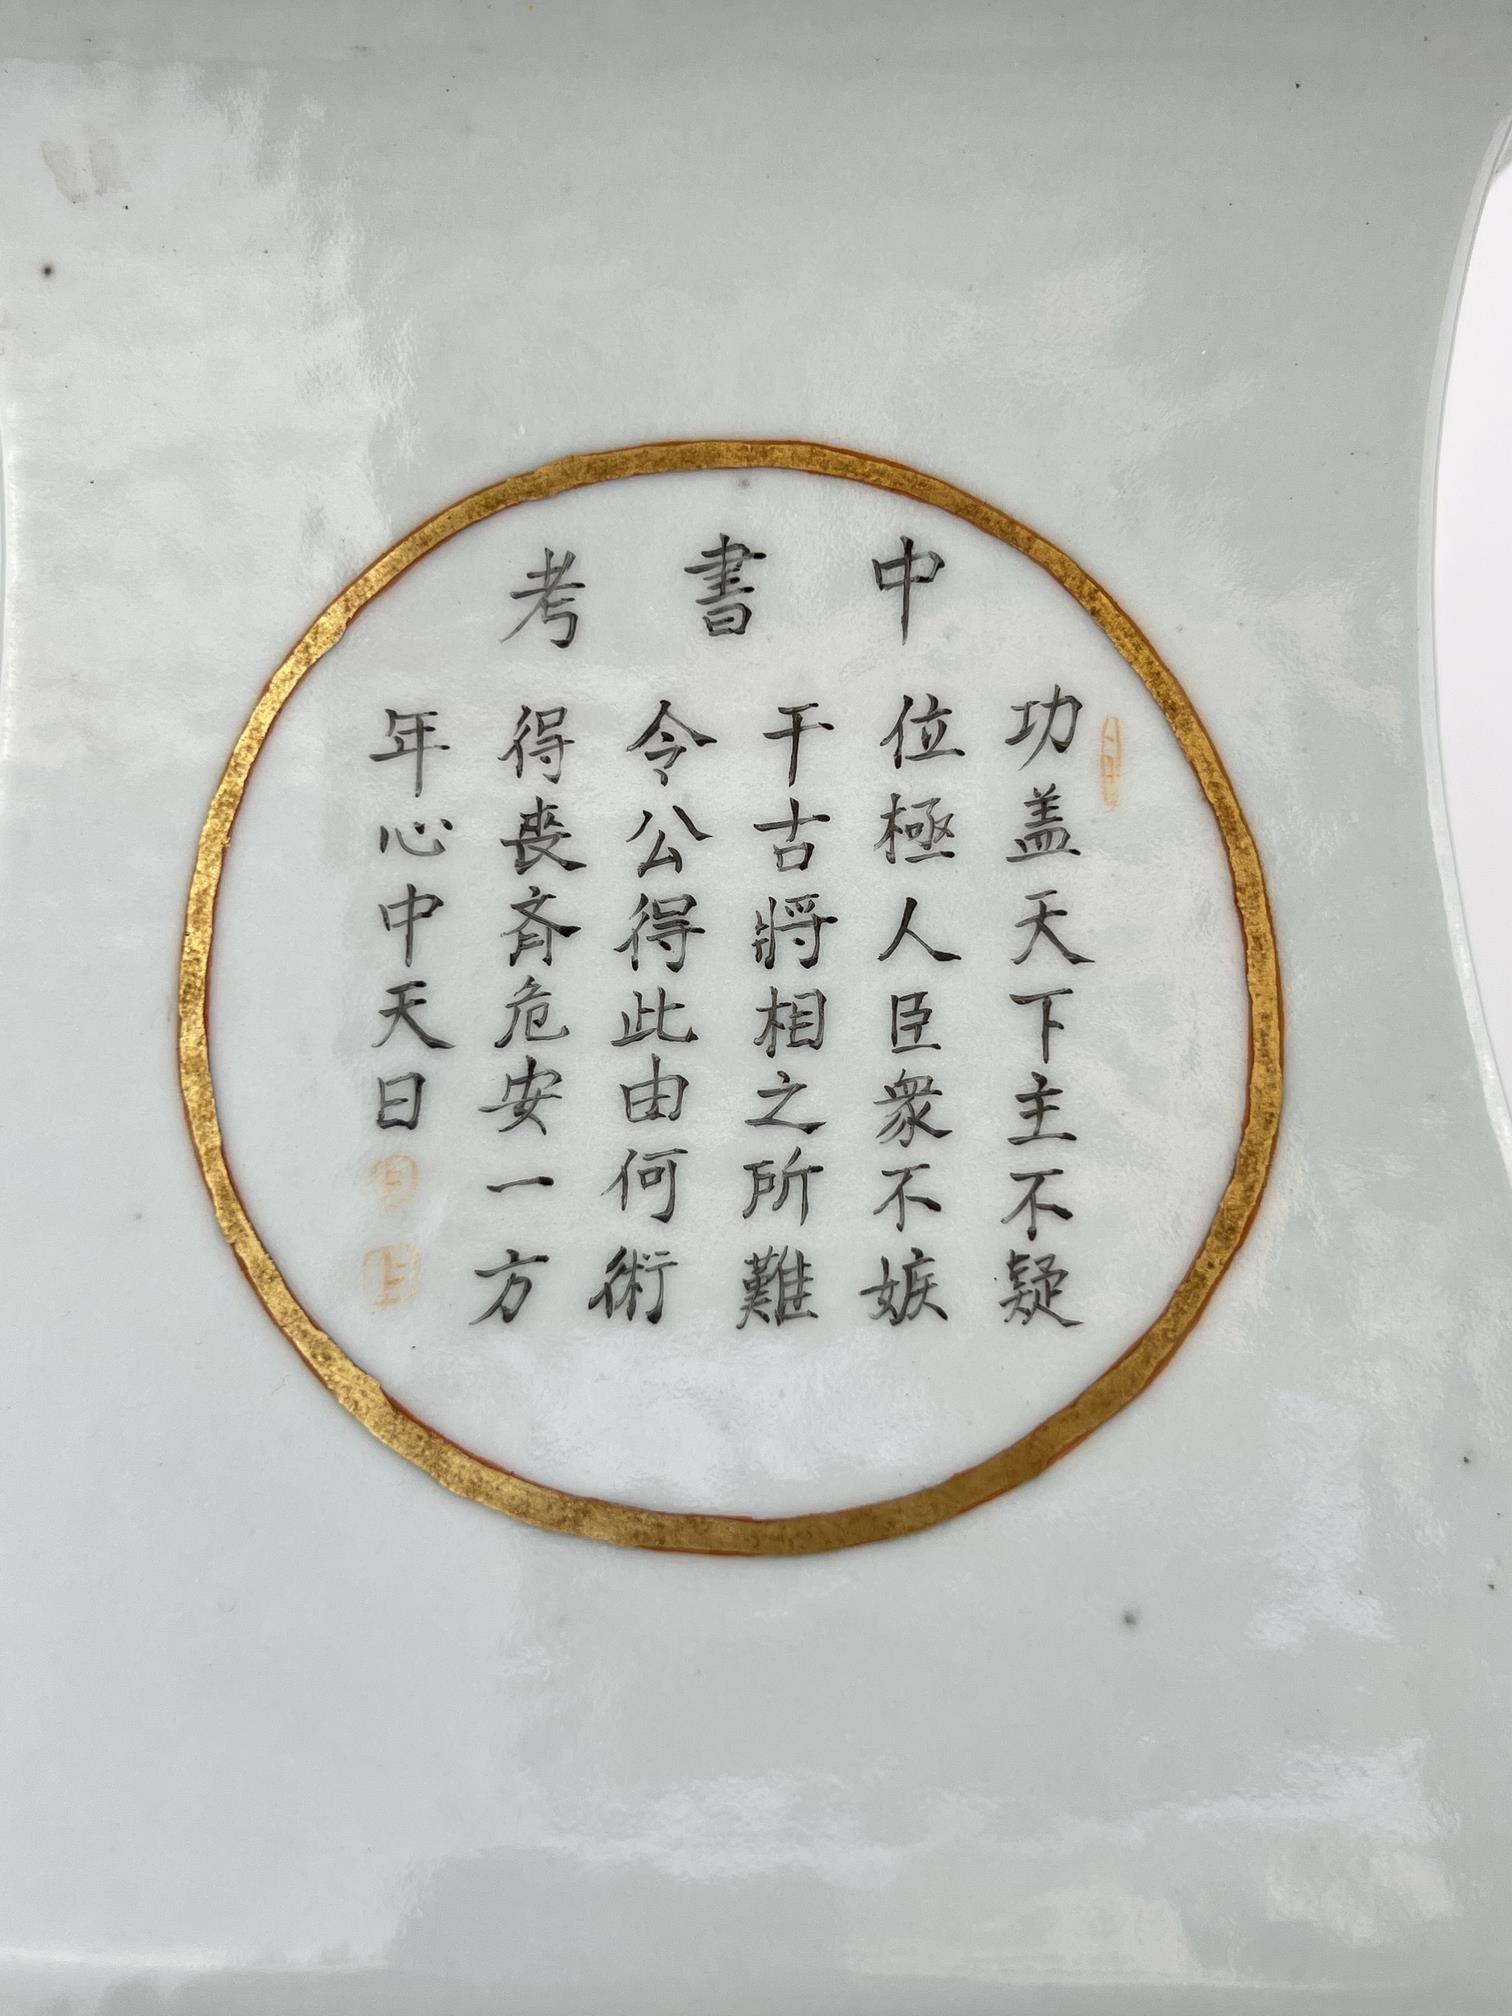 中書考
功盖天下主不疑
位極人臣衆不嫉
千古將相之所難
令公得此由何術
得喪斉危安一方
年心中天日